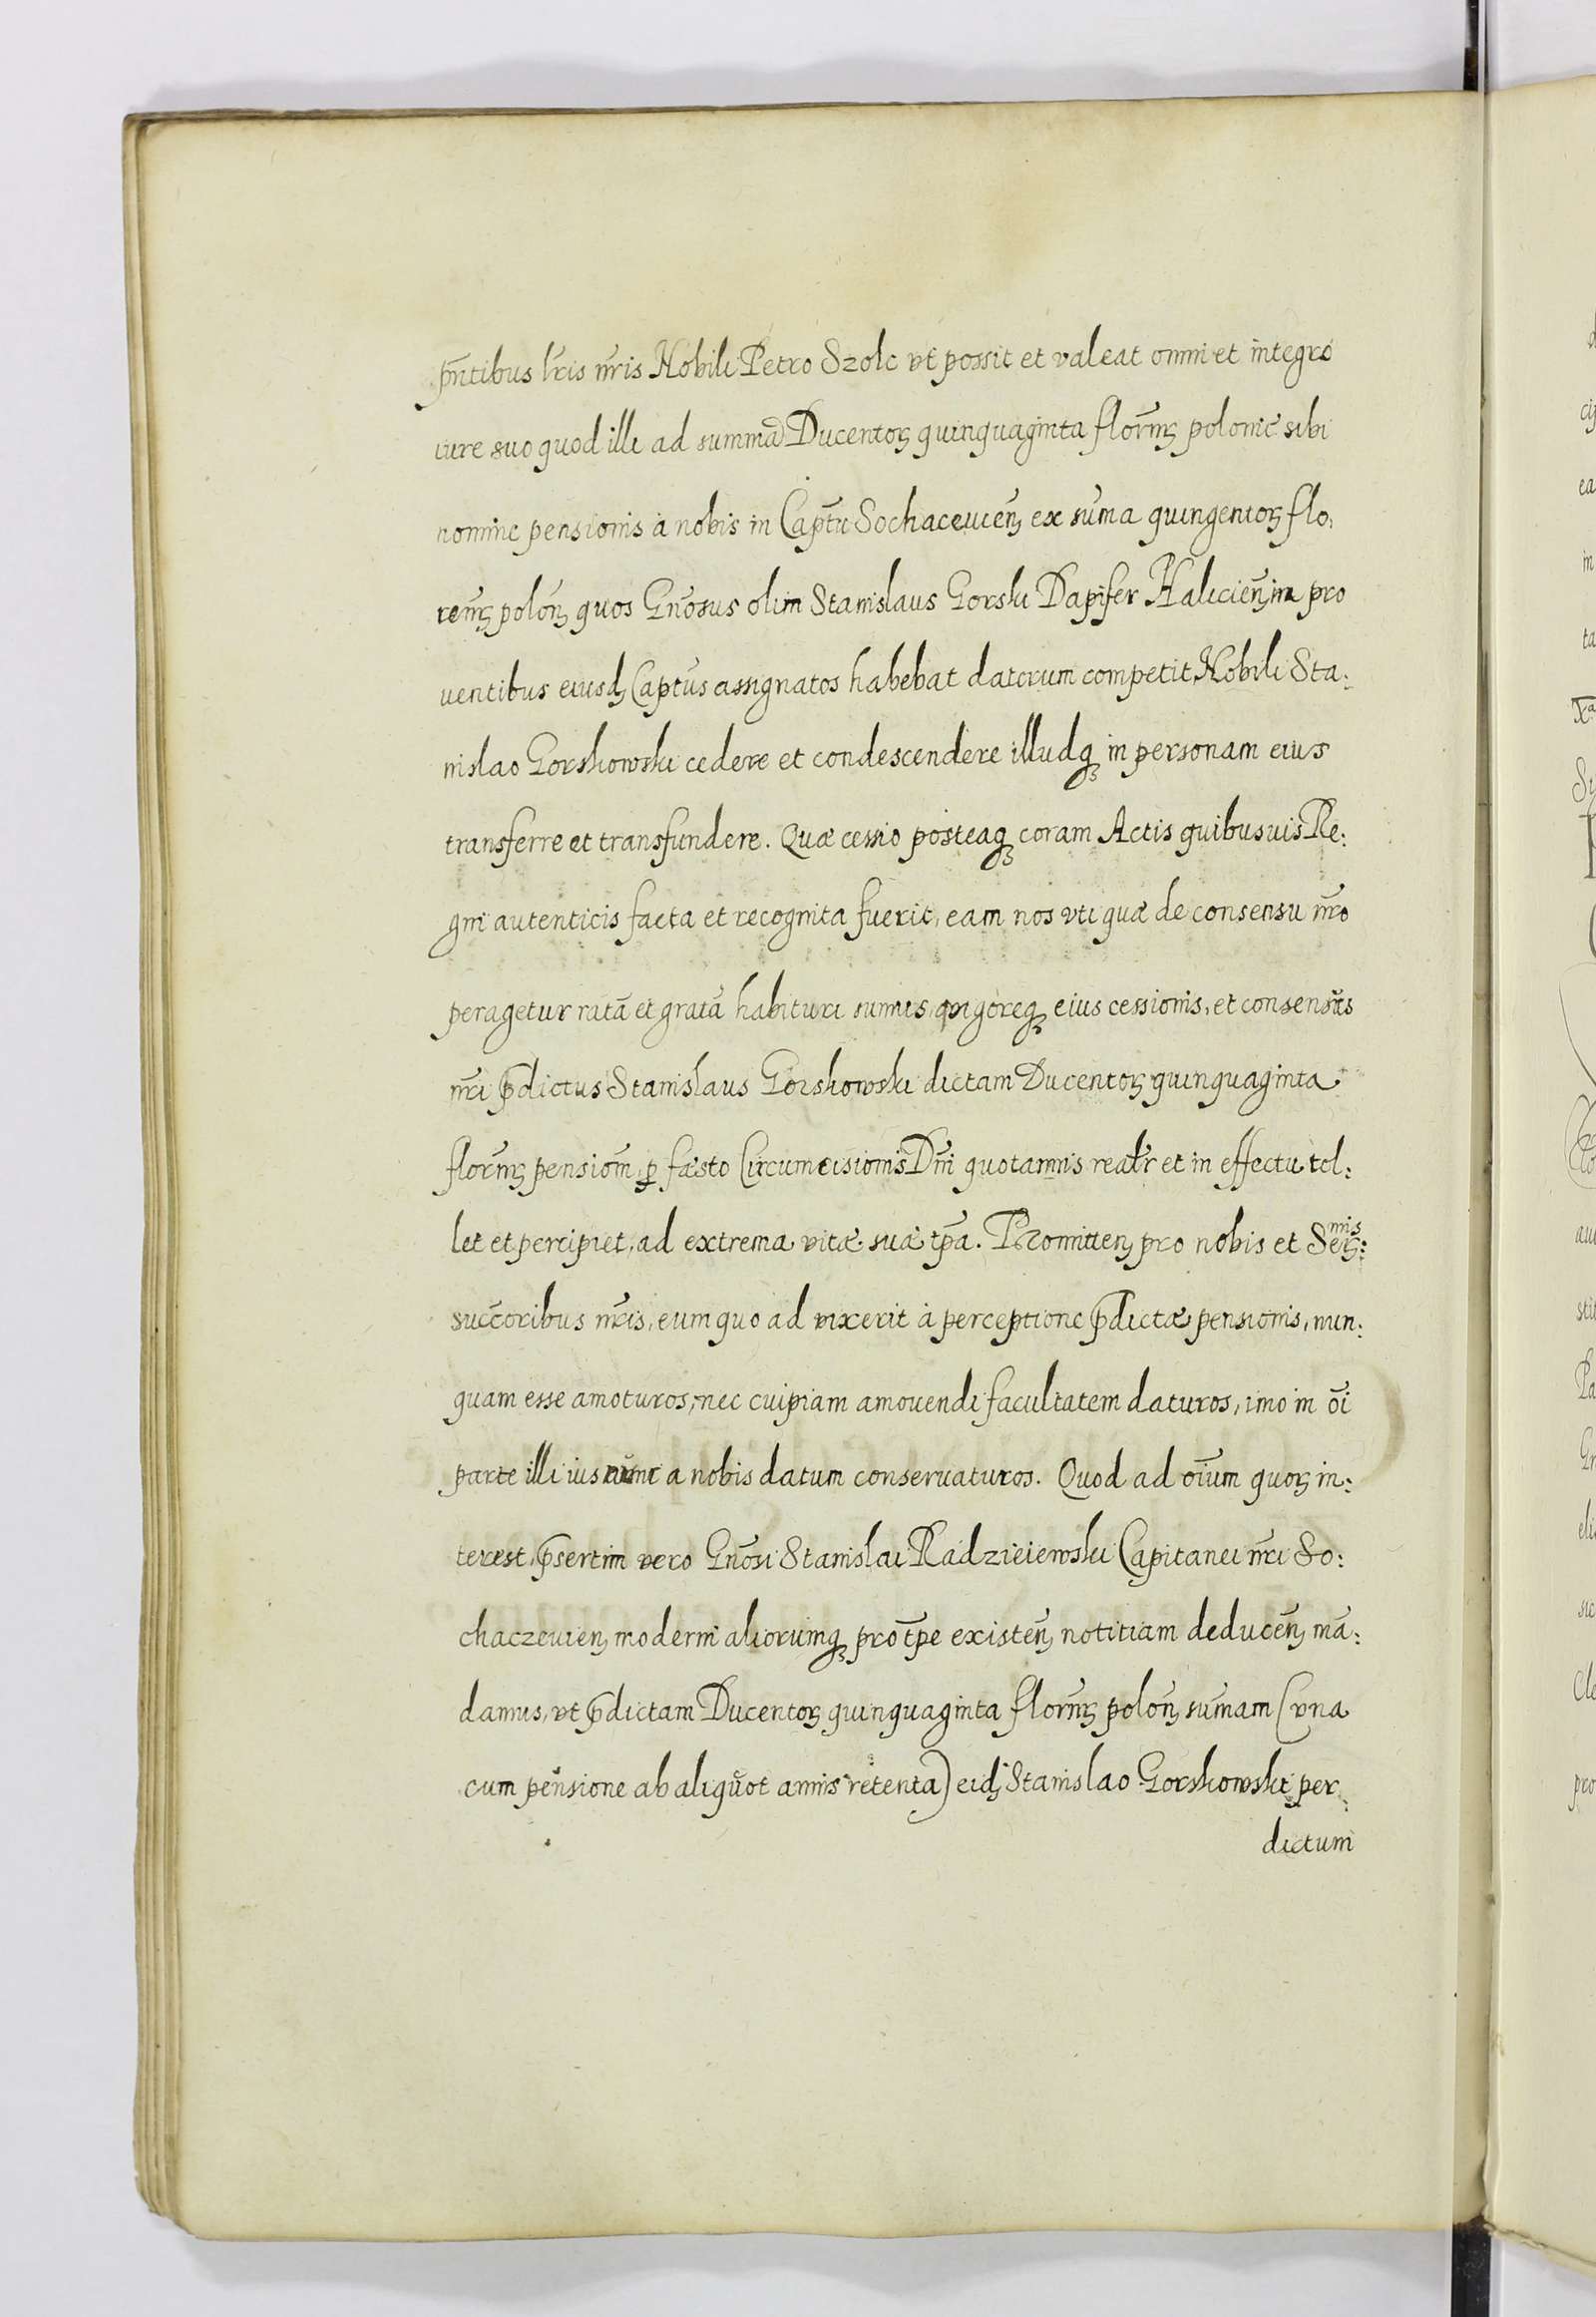 p̃ntibus lr̃is nr̃is Nobili Petro Szolc vt possit et valeat omni et integro
iure suo quod illi ad summã Ducentoꝝ quinquaginta florẽnꝝ polonic̃ sibi
nomine pensionis à nobis in Capt̃u Sochaceuieñ ex sum̃a quingentoꝝ flo,
reñꝝ poloñ quos Gñosus olim Stanislaus Gorski Dapifer Halicieñ in pro
uentibus eiusdꝫ Captũs assignatos habebat datorum competit, Nobili Sta:
nislao Gorskowski cedere et condescendere illudqꝫ in personam eius
transferre et transfundere. Quæ cessio posteaqꝫ coram Actis quibusuis Re:
gni autenticis facta et recognita fuerit, eam nos vti quæ de consensu nr̃o
peragetur ratã et gratã habituri sumus, vigoreqꝫ eius cessionis, et consensũs
nr̃i p̃dictus Stanislaus Gorskowski dictam Ducentoꝝ quinquaginta
florẽnꝝ pensioñm ꝓ fæsto Circumcisionis Dñi quotannis realr̃ et in effectu tol:
let et percipiet, ad extrema vitæ suæ tp̃a. Promitteñ pro nobis et Serꝝ:mis
succ̃oribus nr̃is, eum quo ad vixerit à perceptione p̃dictæ pensionis, nun:
quam esse amoturos, nec cuipiam amouendi facultatem daturos, imo in õi
parte illi ius nunc a nobis datum conseruaturos. Quod ad oĩum quoꝝ in:
terest, p̃sertim vero Gñosi Stanislai Radzieiewski Capitanei nr̃i So:
chaczeuieñ moderni aliorumqꝫ pro tp̃e existeñ notitiam deduceñ mã:
damus, vt p̃dictam Ducentoꝝ quinquaginta florẽnꝝ poloñ sum̃am (vna
cum pensione ab aliquot annis retenta) eidꝫ Stanislao Gorskowski per,
dictum